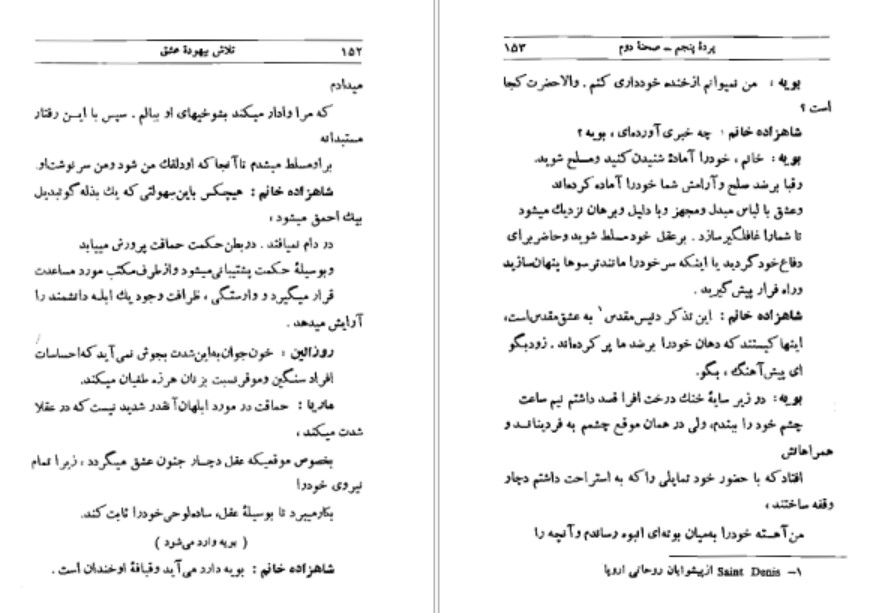 ۱۵۲ تلاش بیهودهٔ عشق
میدادم
که مرا وادار میکند بشوخیهای او ببالم . سپس با ایـن رفتار
مستبدانه
براومسلط میشدم تاآنجا که اودلقك من شود ومن سرنوشت‌او.
شاهزاده خانم : هیچکس باین‌سهولتی که یك بذله گوتبدیل
بیك احمق میشود ،
در دام نمیافتد . دربطن حکمت حماقت پرورش مییابد
وبوسیلهٔ حکمت پشتیبانی‌میشود وازطرف‌مکتب مورد مساعدت
قرار میگیرد و وارستگی ، ظرافت وجود یك ابلـه دانشمند را
آرایش میدهد .
روزالین : خون‌جوان‌به‌این‌شدت بجوش نمی‌آید که‌احساسات
افراد سنگین وموقرنسبت بزنان هرزه طغیان میکند.
ماتریا : حماقت در مورد ابلهان‌آنقدر شدید نیست که در عقلا
شدت میکند ،
بخصوص موقعیکه عقل دچـار جنون عشق میگردد ، زیرا تمام
نیروی خودرا
بکارمیبرد تا بوسیلهٔ عقل، ساده‌لوحی‌خودرا ثابت کند.
( بویه وارد می‌شود )
شاهزاده خانم : بویه دارد می‌آید وقیافهٔ اوخندان است .
پردهٔ پنجم ــ صحنهٔ دوم ۱۵۳
بویه : من نمیوانم ازخنده خودداری کنم . والاحضرت کجا
است ؟
شاهزاده خانم : چه خبری آورده‌ای ، بویه ؟
بویه : خانم ، خودرا آمادهٔ شنیدن کنید ومسلح شوید.
رقبا برضد صلح وآرامش شما خودرا آماده کرده‌اند
وعشق با لباس مبدل ومجهز وبا دلیل وبرهان نزدیك میشود
تا شمارا غافلگیرسازد . برعقل خودمسلط شوید وحاضربرای
دفاع‌خودگردید یا اینکه سرخودرا مانندترسوها پنهان‌سازید
وراه فرار پیش‌گیرید .
شاهزاده خانم : این تذکر دنیس‌مقدس۱ به عشق‌مقدس‌است،
اینها کیستند که دهان خودرا برضد ما پر کرده‌اند . زودبگو
ای پیش‌آهنگ ، بگو.
بویه: در زیر سایهٔ خنك درخت افرا قصد داشتم نیم ساعت
چشم خود را ببندم، ولی در همان موقع چشمم به فردینانـد و
همراهانش
افتاد که با حضور خود تمایلی راکه به استراحت داشتم دچار
وقفه ساختند ،
من‌آهسته خودرا به‌میان بوته‌ای انبوه رساندم وآنچه را
۱– Saint Denis ازپیشوایان روحانی اروپا